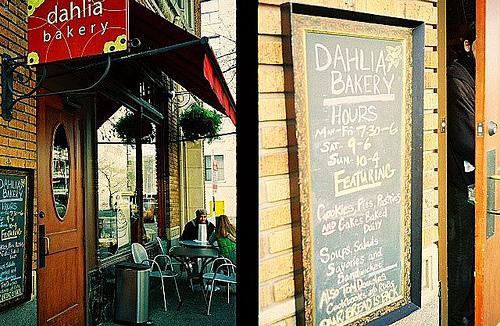 dahlia
bakery
DAHLIA
BAKERY
HOURS
FEATURING
DAHLIA
BAKERY
HOURS
MON-FRI 7:30-6
SAT. 9-6
SUN. 10-4
FEATURING
Cookies, Pies, Pastries
AND Cakes Baked
Daily
Soups, Salads
Savories and
Sandwiches
Also Tom Douglas
Cookbooks & Rubs
OUR BREAD IS BACK